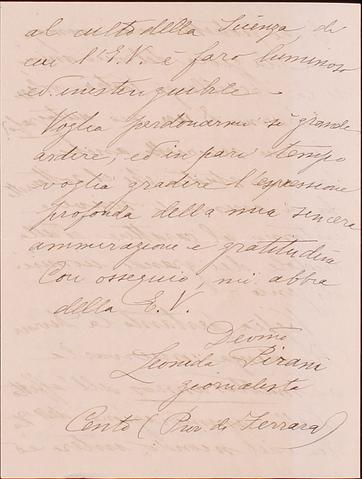 al culto della Scienza, di
cui l'E.V. è faro luminoso
ed inestinguibile.
Voglia perdonarmi sì grande
ardire, ed in pari tempo
voglia gradire l'espressione
profonda della mia sincera
ammirazione e gratitudine
Con ossequio, mi abbia
della E.V.
Devmo
Leonida Pirani
giornalista
Cento (Prov. di Ferrara)